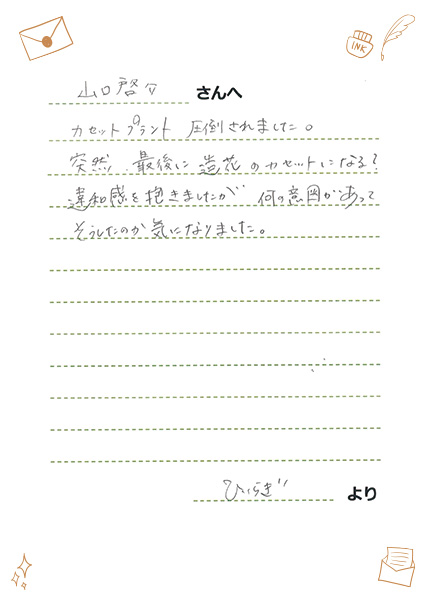 INK
山口啓介 さんへ
カセットプラント 圧倒されました。
突然、最後に造花のカセットになる?
違和感を抱きましたが 何の意図があって
そうしたのか気になりました。
ひらぎ より